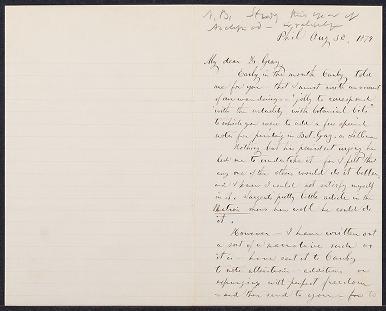 N.B. Study this year of
Phil Aug 30, 1879
My dear Dr Gray
Early in the month Canby, told
me for you that I must write an account
of our wanderings - "jolly to correspond
with the notability with botanical bits"
to which you were to add a few special
notes for printing in Bot. Gaz. or
Nothing but his persistent urging has
led me to undertake it - for I felt that
any one of the others would do it better
and I knew I could not satisfy myself
in it. Sargent's pretty little article in the
Nation shows how well he could do
it.
However - I have written out
a sort of a narrative such as
it is - have sent it to Canby
to note alterations - additions or
expungings with perfect freedom
- and then send to you - for to